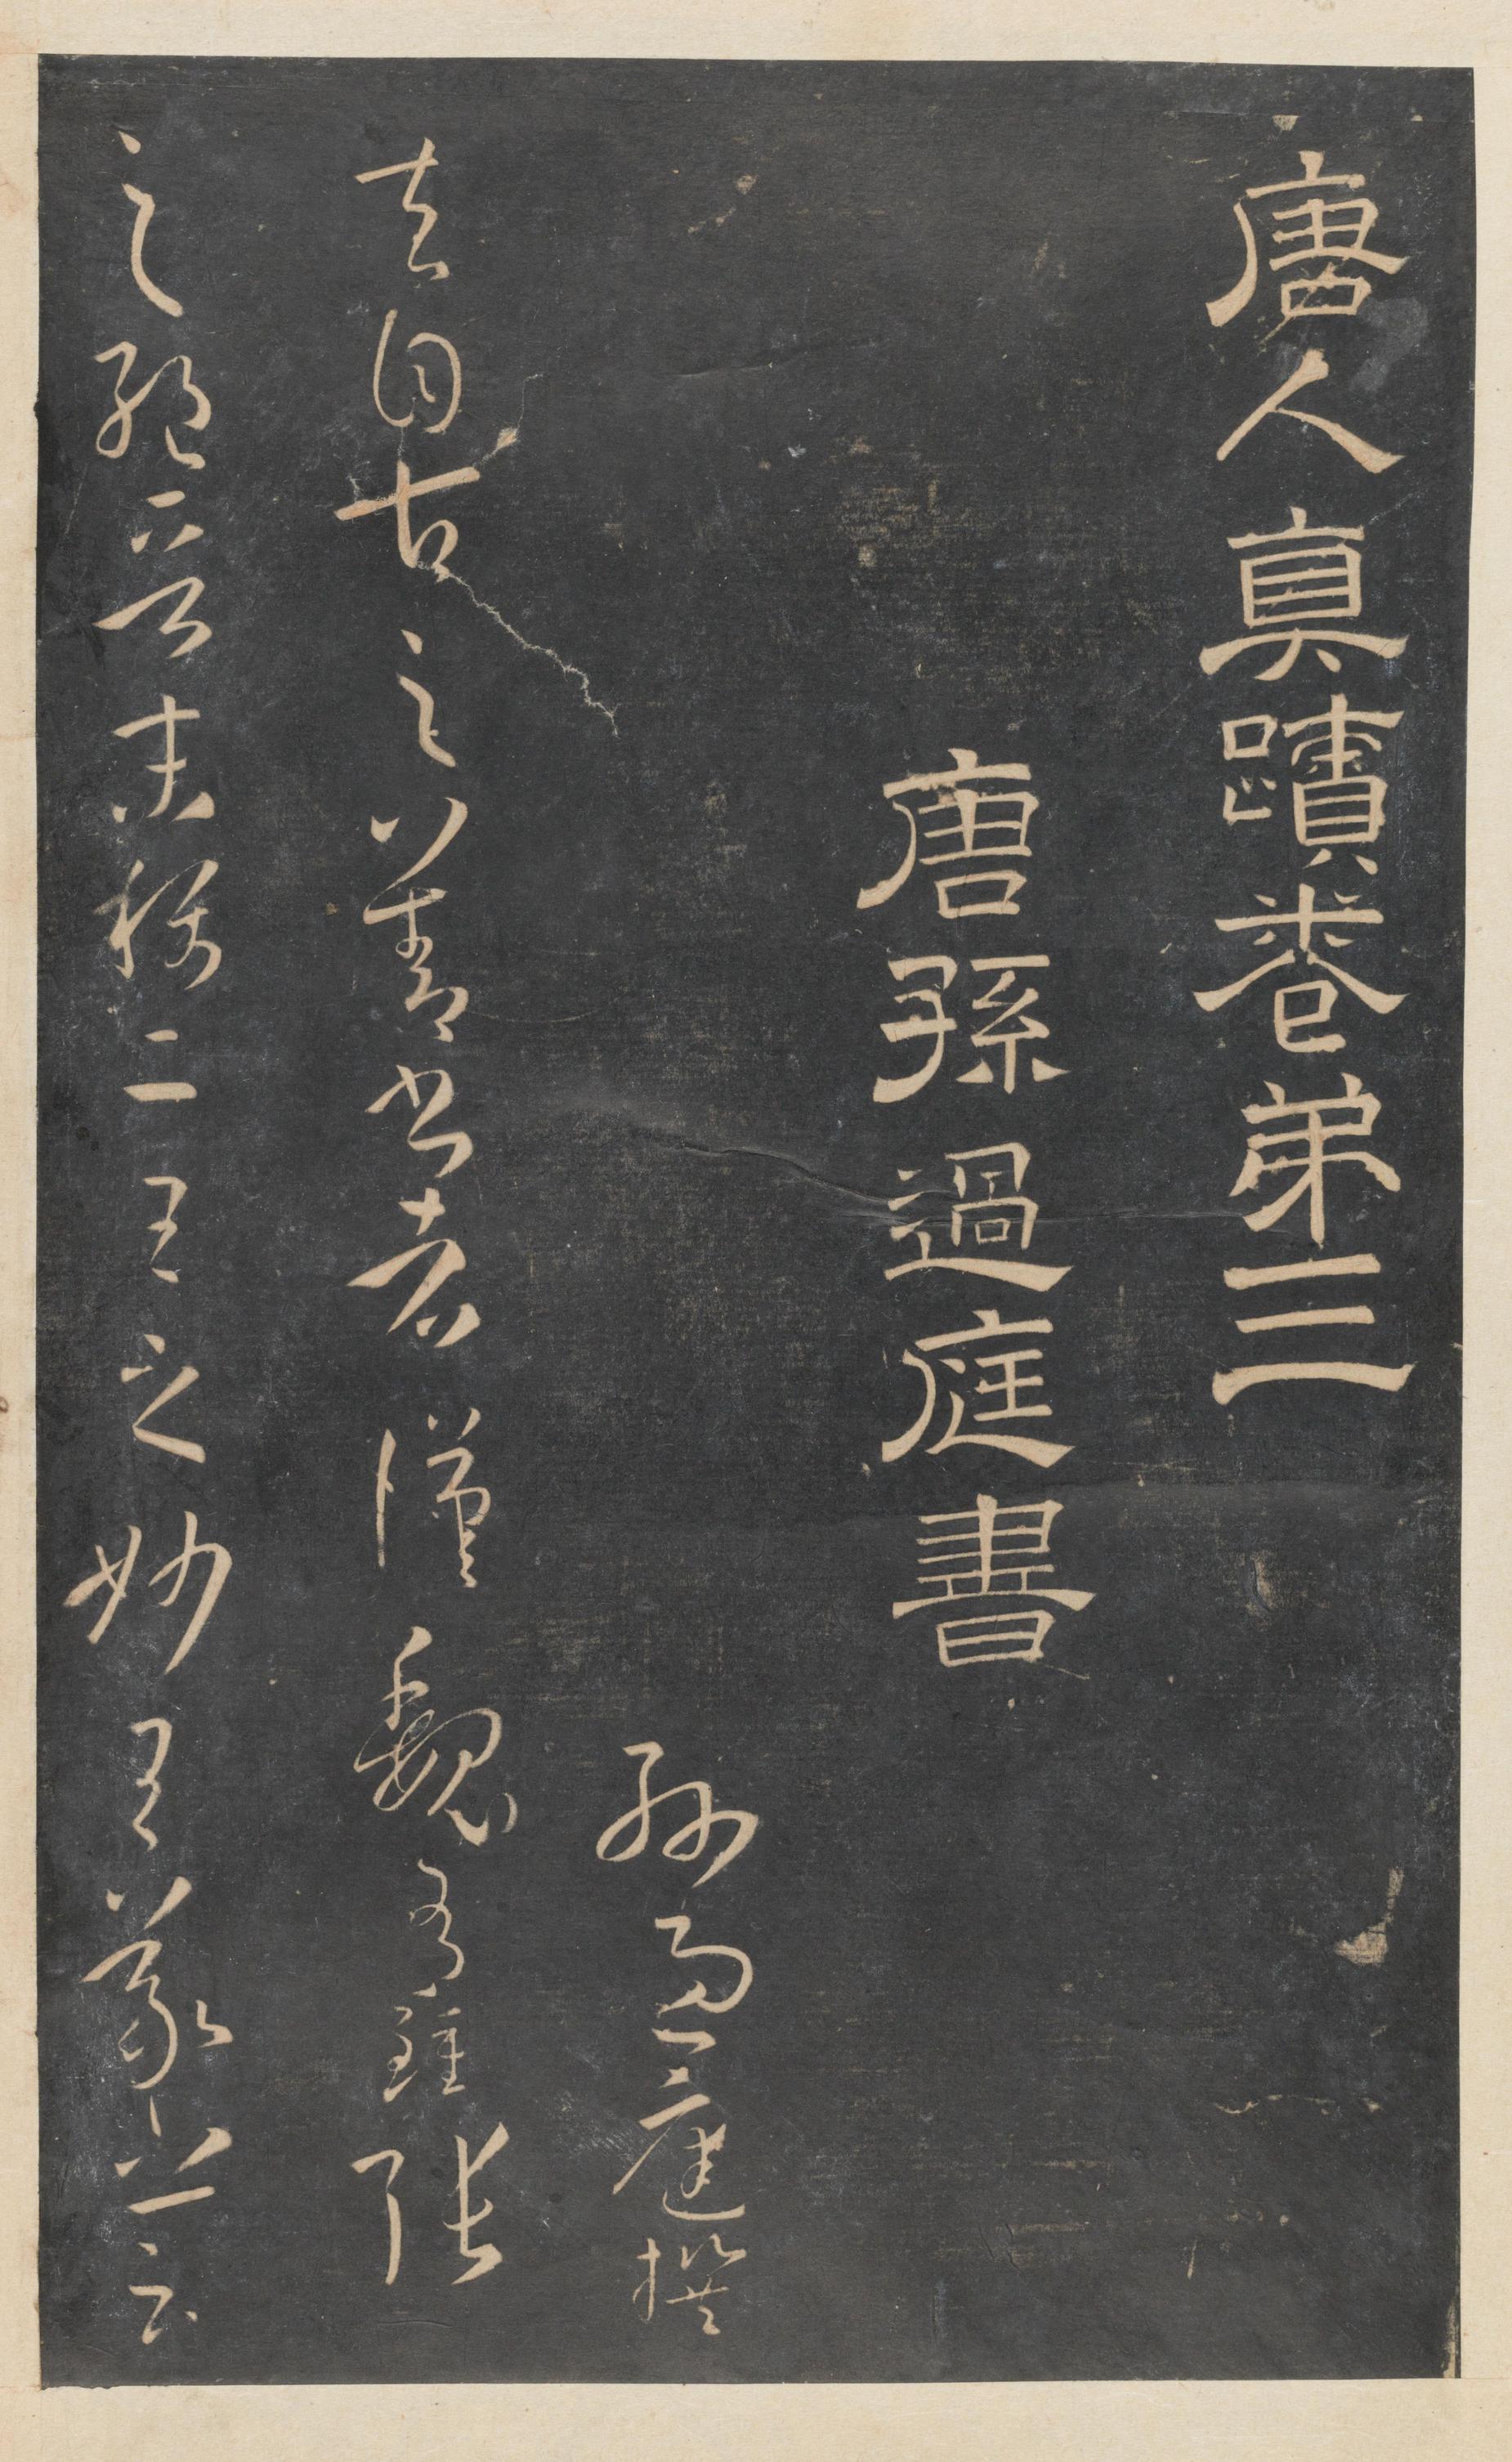 唐人真蹟卷弟三
唐孫過庭書
孫過庭撰
夫自古之善書者漢魏有鍾張
之絕晉末稱二王之妙王羲之云